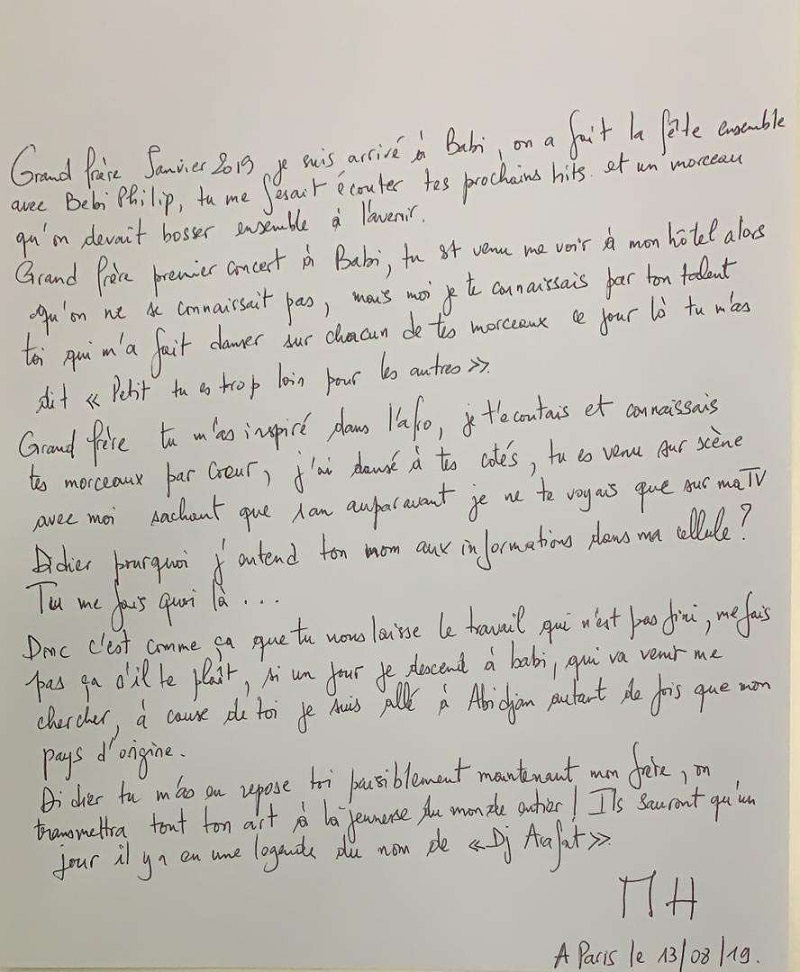 Grand frère Janvier 2019 je suis arrivé à Babi, on a fait la fête ensemble
avec Bebi Philip, tu me fesait écouter tes prochains hits et un morceau
qu'on devait bosser ensemble à l'avenir.
Grand frère premier concert à Babi, tu st venu me voir à mon hôtel alors
qu'on ne se connaissait pas, mais moi je te connaissais par ton talent
toi qui m'a fait danser sur chacun de tes morceaux ce jour là tu m'as
dit « Petit tu es trop loin pour les autres ».
Grand frère tu m'as inspiré dans l'afro, je t'ecoutais et connaissais
tes morceaux par cœur, j'ai dansé à tes cotés, tu es venu sur scène
avec moi sachant que 1 an auparavant je ne te voyais que sur ma TV
Didier pourquoi j'entend ton nom aux informations dans ma cellule ?
Tu me fais quoi là ...
Donc c'est comme ça que tu nous laisse le travail qui n'est pas fini, me fais
pas ça s'il te plaît, si un jour je descend à babi, qui va venir me
chercher, à cause de toi je suis allé à Abidjan autant de fois que mon
pays d'origine.
Didier tu m'as eu repose toi paisiblement maintenant mon frère, on
transmettra tout ton art à la jeunesse du monde entier ! Ils sauront qu'un
jour il y a eu une legende du nom de « Dj Arafat ».
MH
A Paris le 13/08/19.